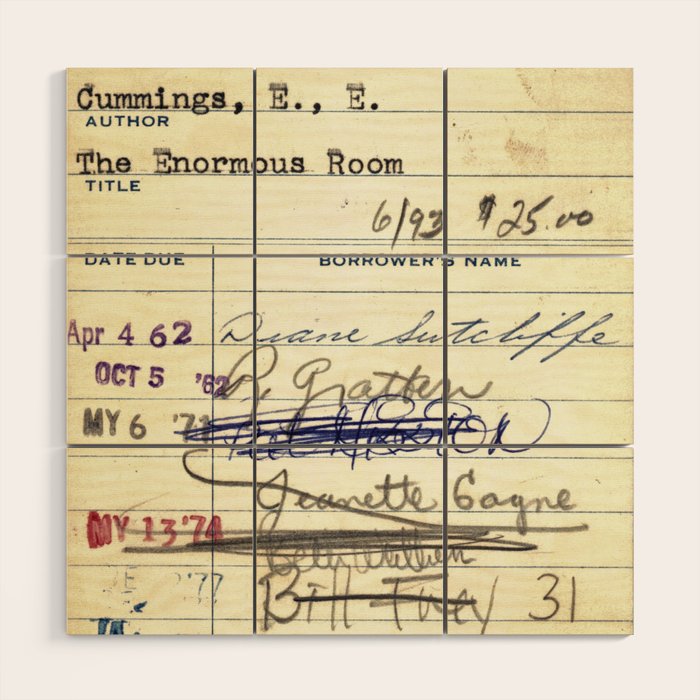 Cummings, E., E.
AUTHOR
The Enormous Room
TITLE
6/93 $25.00
DATE DUE BORROWER'S NAME
Apr 4 62 Diane Sutcliffe
OCT 5 '62 P. Gratten
MY 6 '71
Jeanette Gagne
MY 13 '74
'77 Bill 31